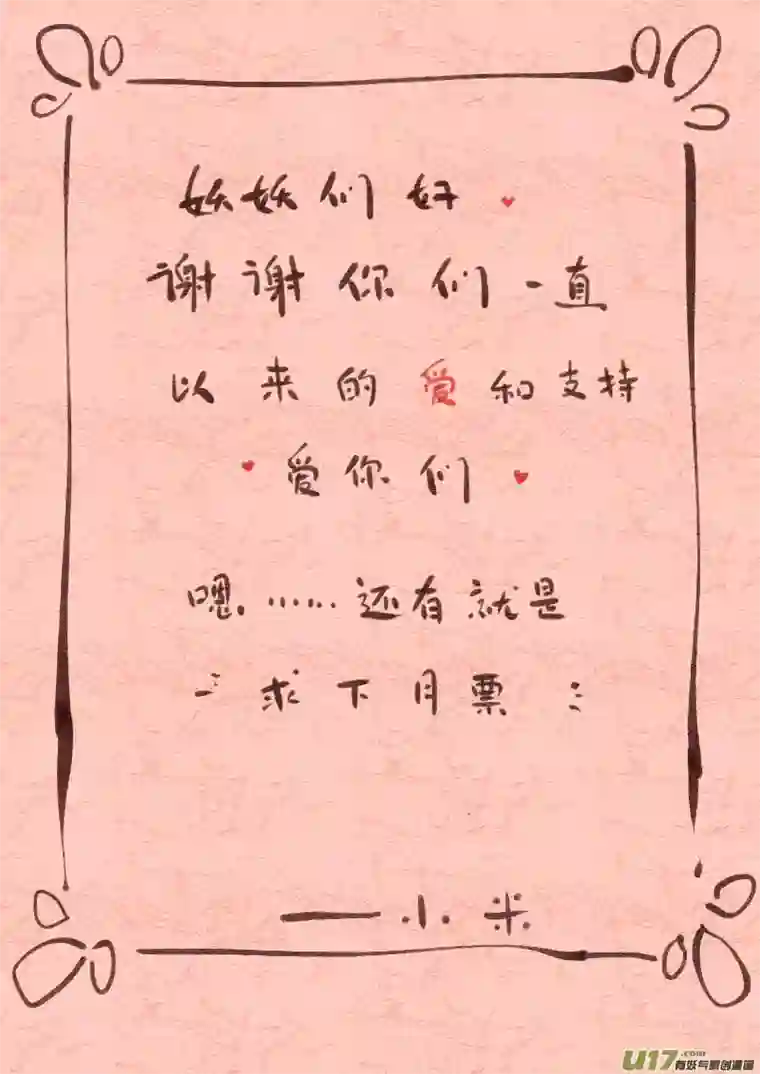 妖妖们好
谢谢你们一直
以来的爱和支持
爱你们
嗯……还有就是
求下月票
——小米
U17.com
有妖气原创漫画